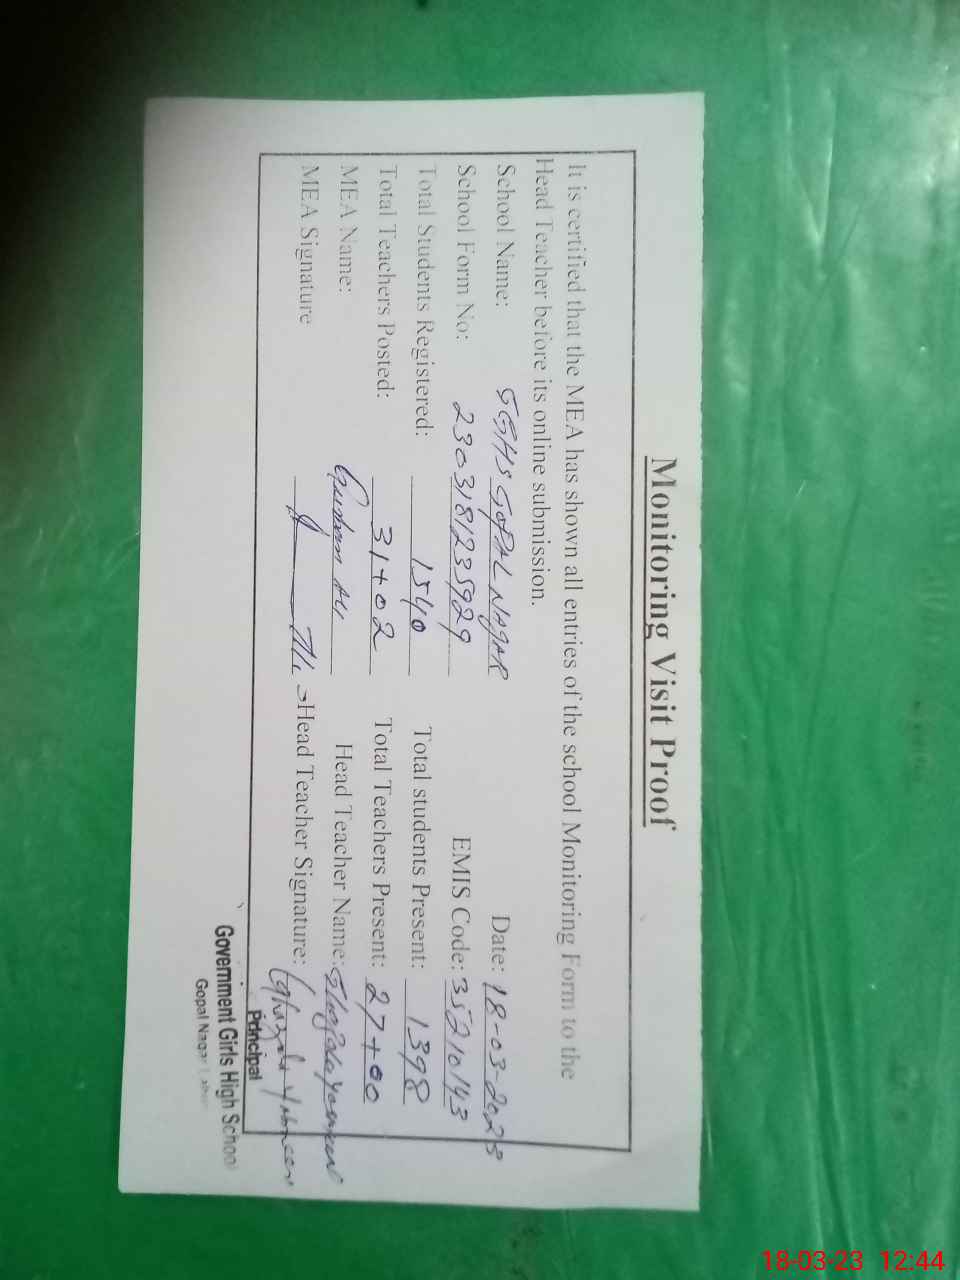 Monitoring Visit Proof
It is certified that the MEA has shown all entries of the school Monitoring Form to the
Head Teacher before its online submission.
School Name: GGHS GOPAL NAgAR Date: 18-03-2023
School Form No: 2303181235929 EMIS Code: 35210143
Total Students Registered: 1540 Total students Present: 1398
Total Teachers Posted: 31+02 Total Teachers Present: 27+00
MEA Name: Head Teacher Name:
MEA Signature Head Teacher Signature:
Principal
Government Girls High School
Gopal Nagar Lahore
18-03-23 12:44